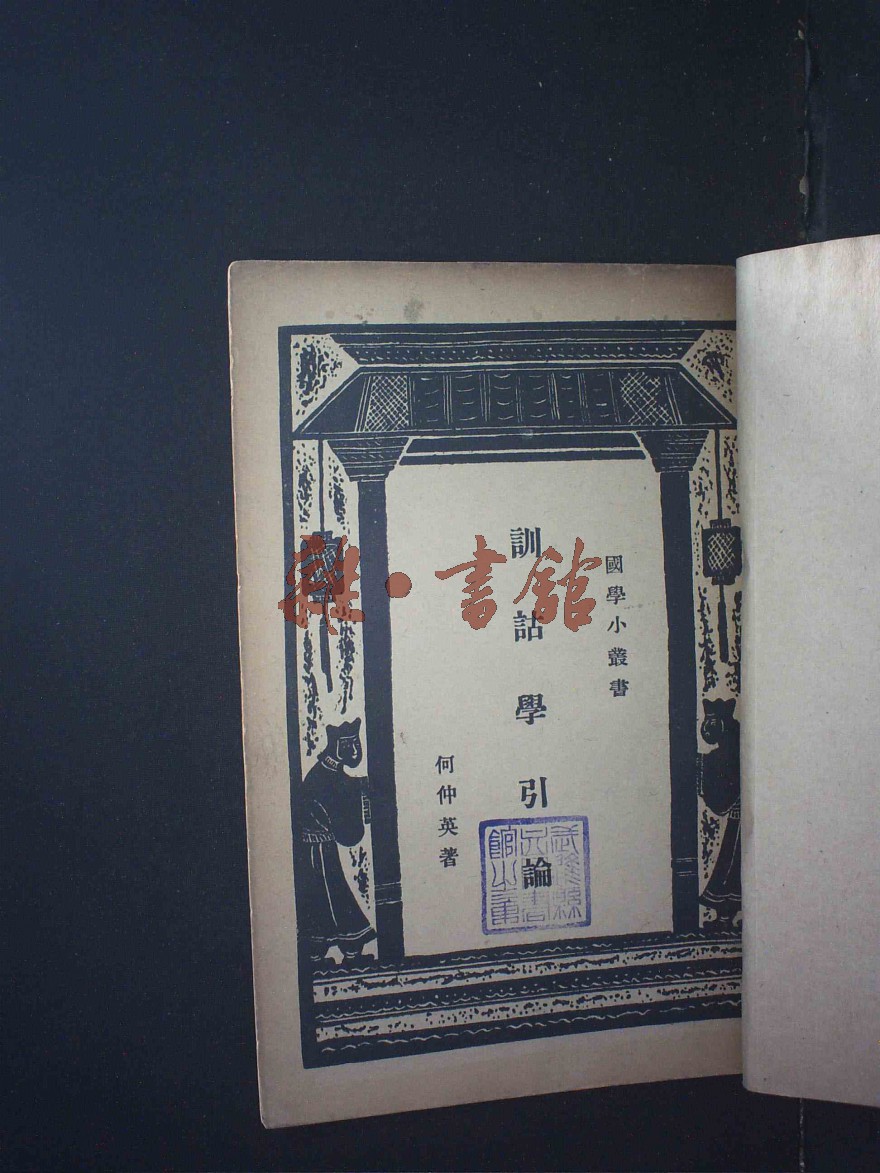 國學小叢書
訓詁學引論
何仲英著
雜·書館